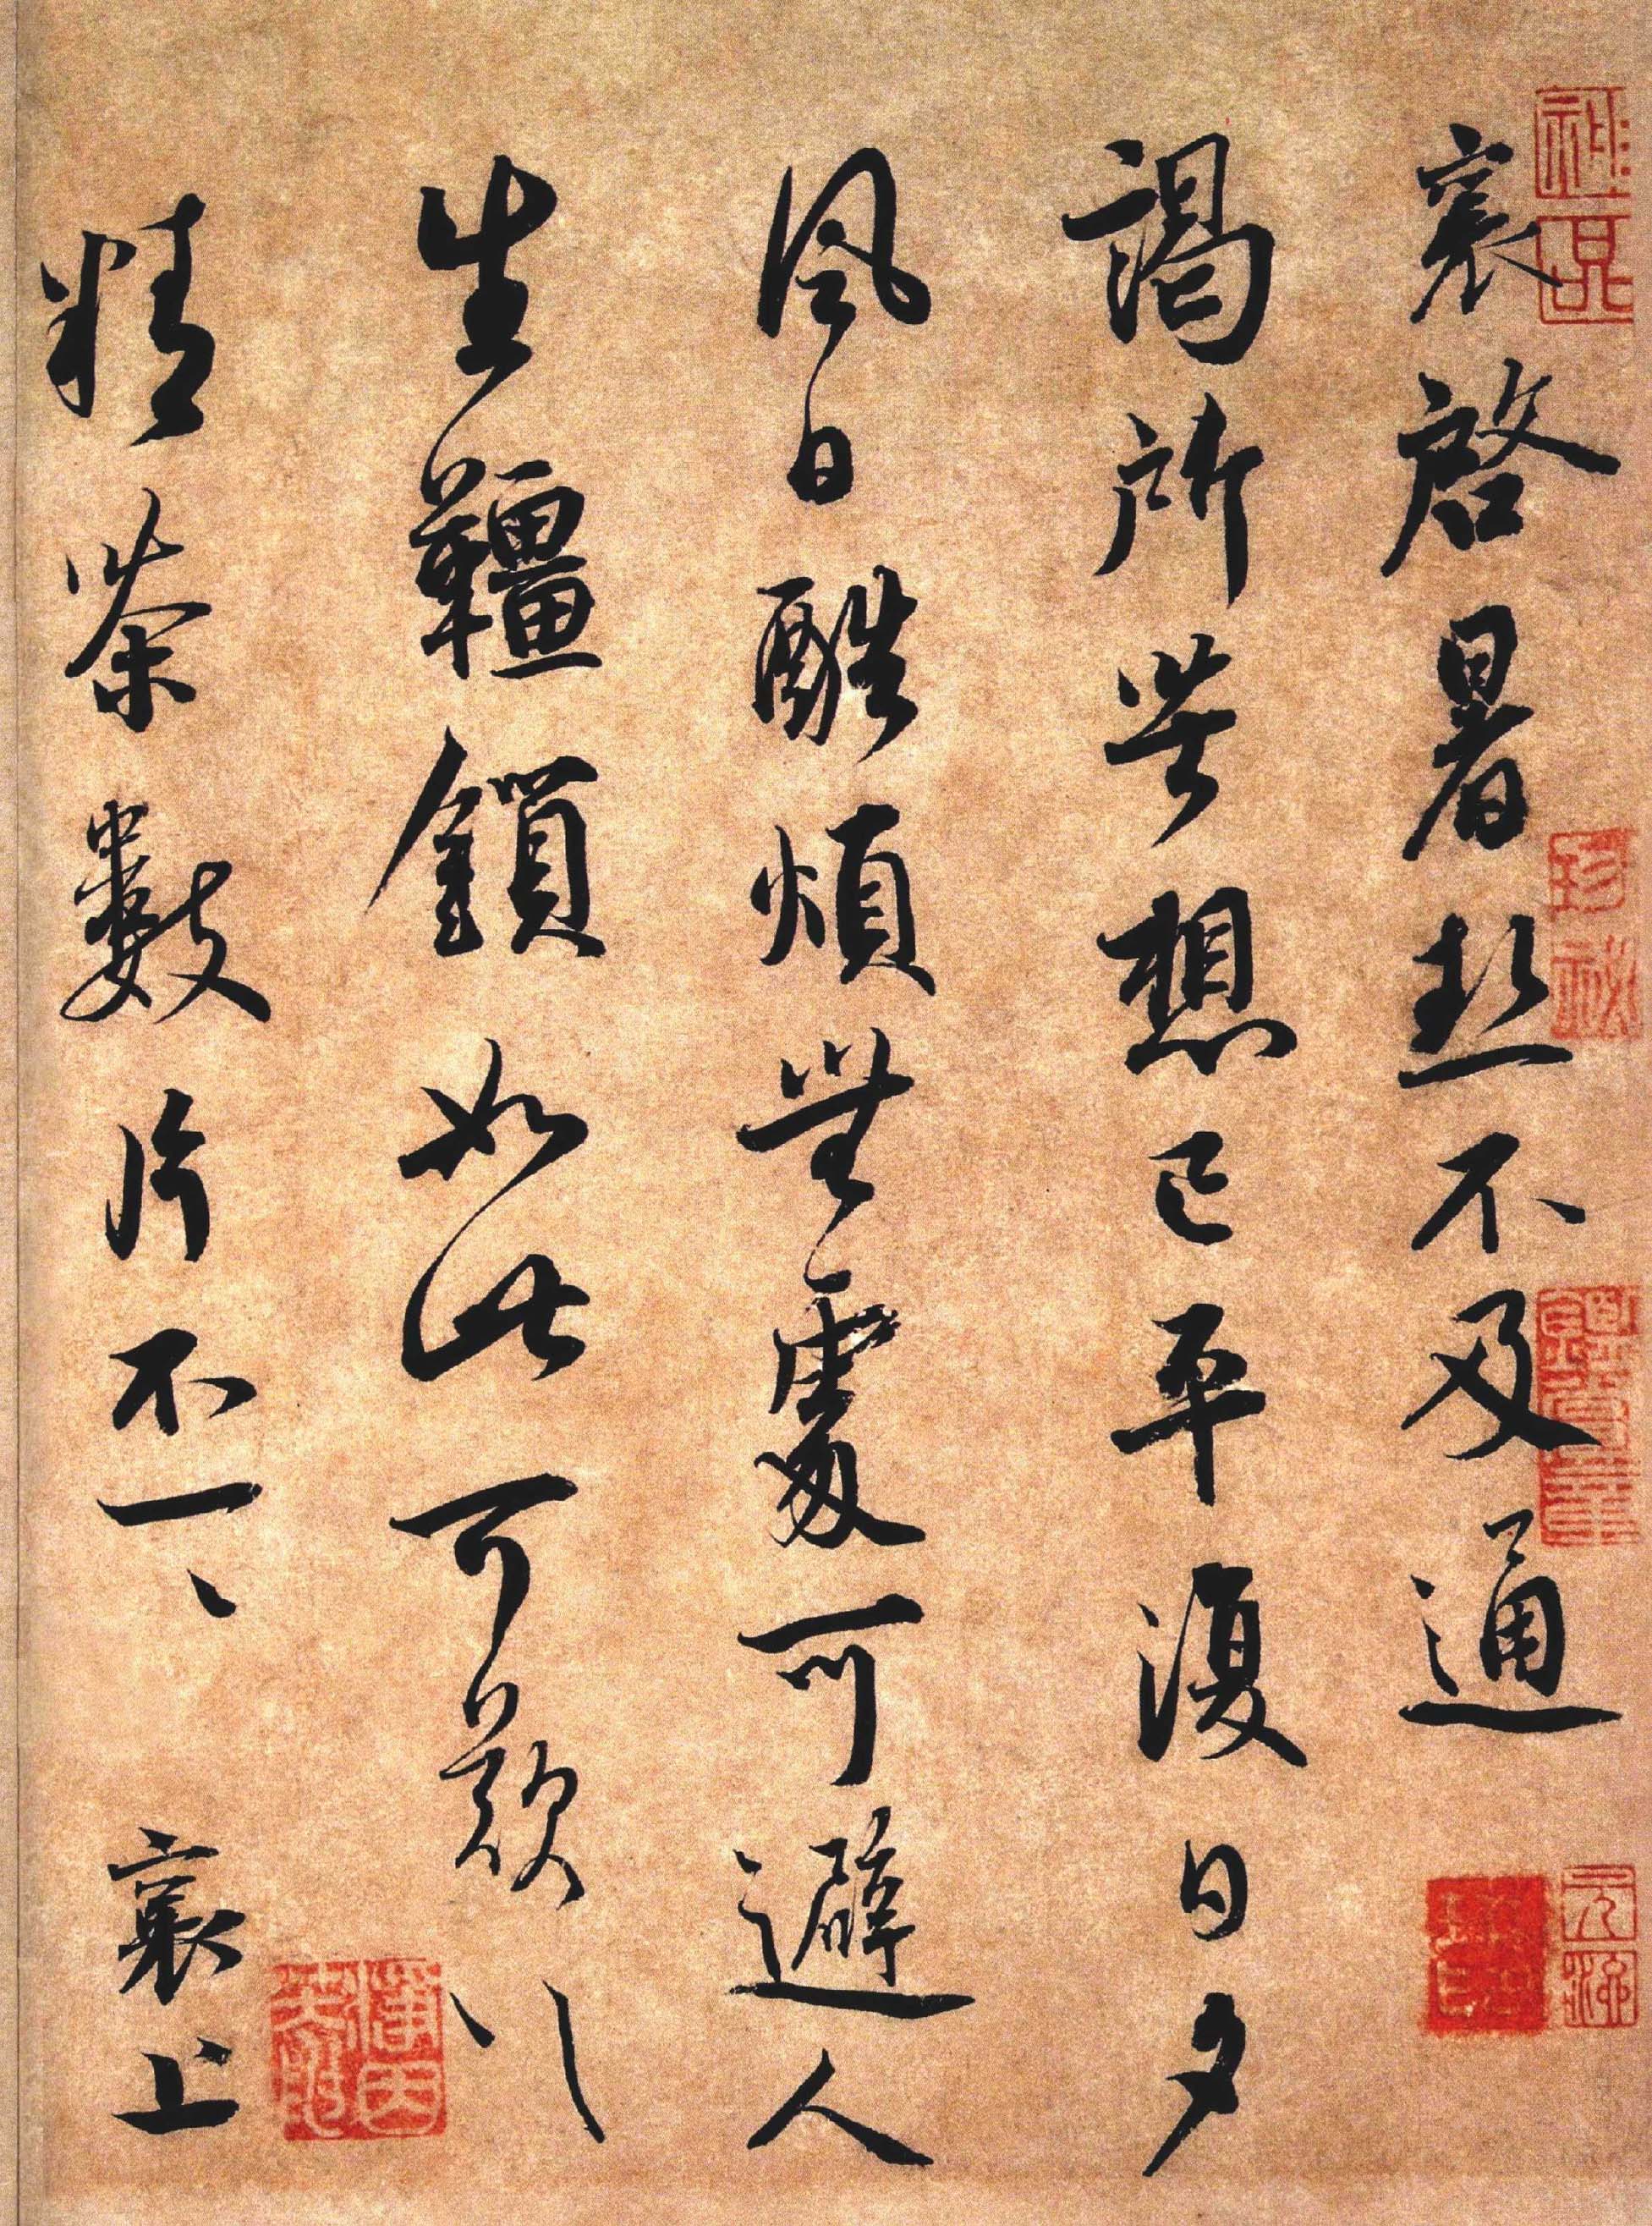 襄啓暑熱不及通
謁所苦想已平復日夕
風日酷煩無處可避人
生韁鎖如此可歎以
精茶數片不一一襄上